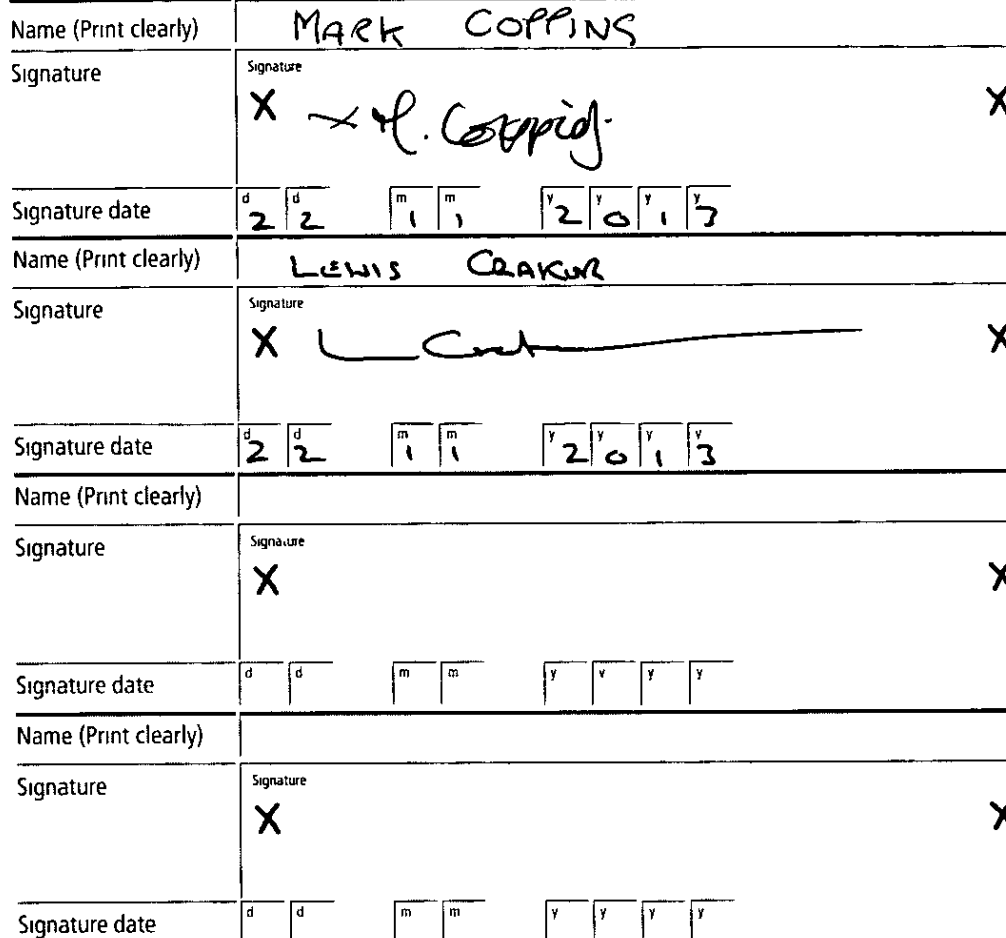 Name (Print clearly) MARK COPPING
Signature Signature
X x M. Copping. X
Signature date d 2 d 2 m 1 m 1 y 2 y 0 y 1 y 3
Name (Print clearly) LEWIS
Signature Signature
X L X
Signature date d 2 d 2 m 1 m 1 y 2 y 0 y 1 y 3
Name (Print clearly)
Signature Signature
X X
Signature date d d m m y y y y
Name (Print clearly)
Signature Signature
X X
Signature date d d m m y y y y